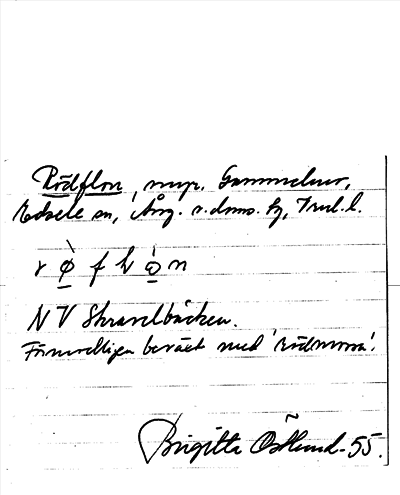 Rödflon, myr, Gammelmo,
Edsele sn, Ång. v. doms. hg, Trul. l.
r ø f l o n
NV Skravelbäcken.
Förmodligen beväxt med 'rödmossa'.
Birgitta Östlund -55.